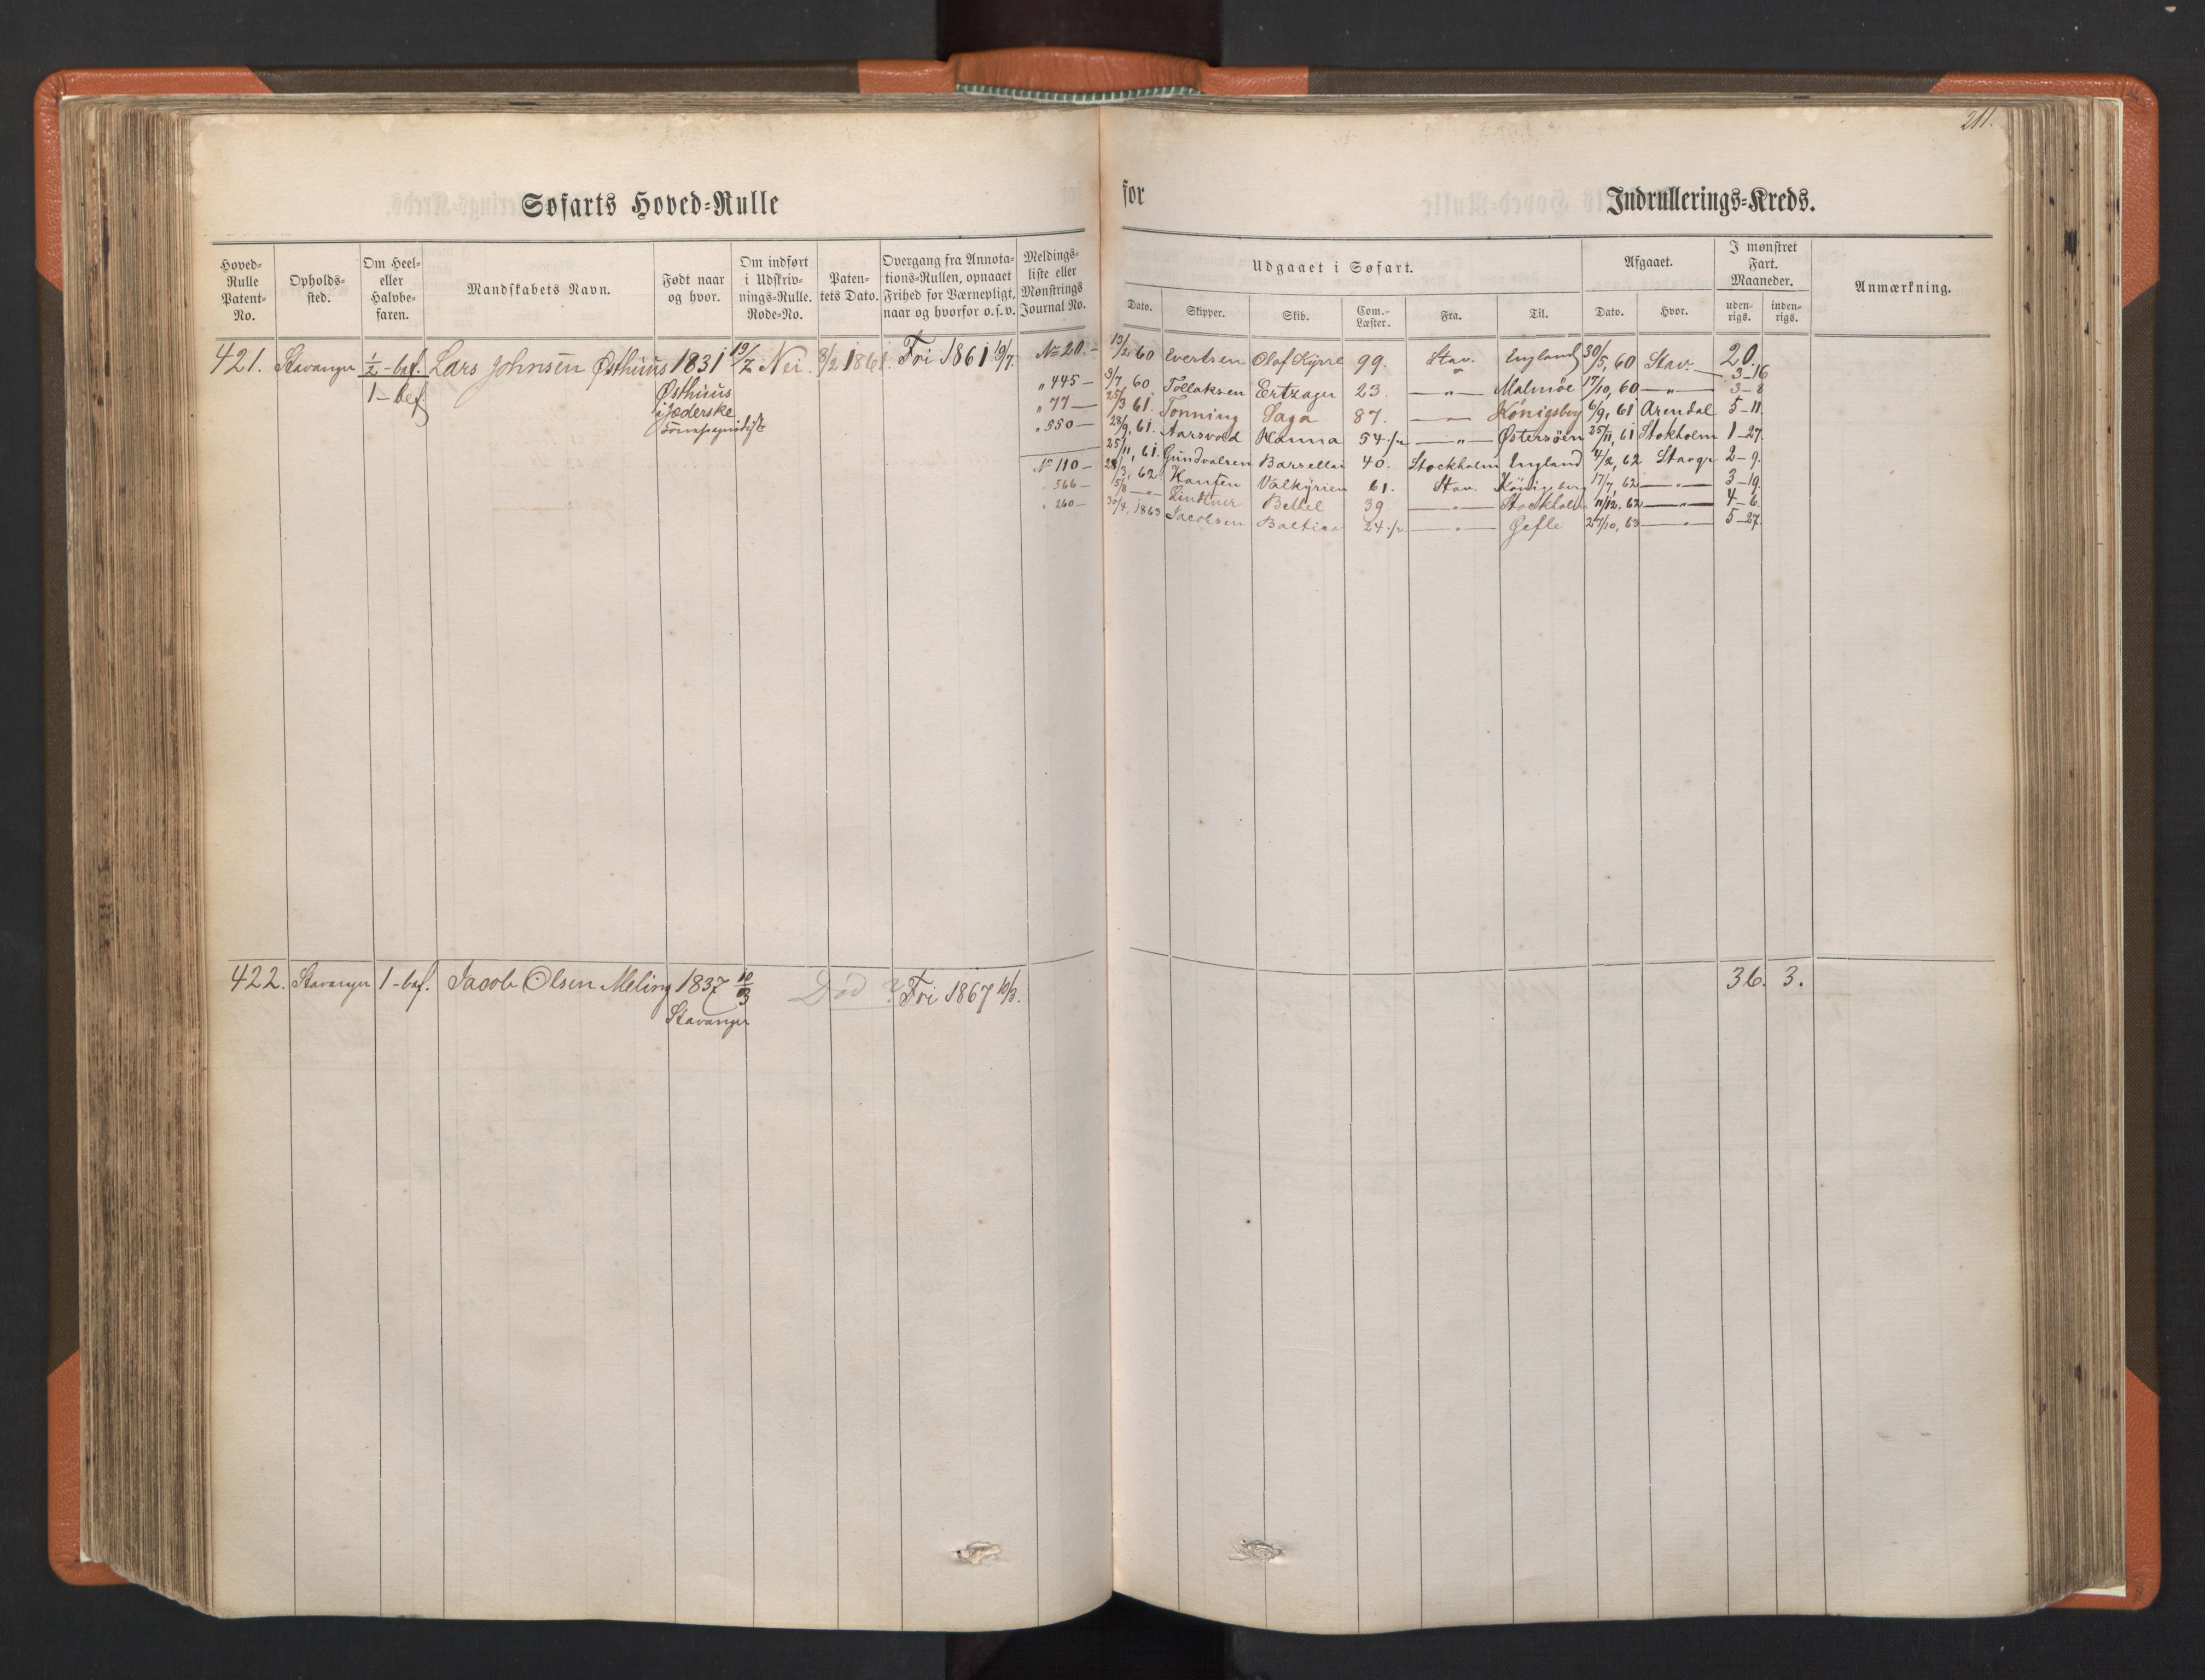 211.
Søfarts Hoved=Rulle for Indrullerings=Kreds.
Hoved=Rulle Patent-No.
Opholds=sted.
Om Heel= eller Halvbe=faren.
Mandskabets Navn.
Født naar og hvor.
Om indført i Udskriv=nings=Rulle. Rode=No.
Paten=tets Dato.
Overgang fra Annota=tions=Rullen, opnaaet Frihed for Værnepligt, naar og hvorfor o.s.v.
Meldings=liste eller Mønstrings Journal No.
Udgaaet i Søfart.
Dato. Skipper. Skib. Com.=Læster. Fra. Til.
Afgaaet.
Dato. Hvor.
I mønstret Fart. Maaneder.
uden=rigs. inden=rigs.
Anmærkning.
421. Stavanger 1/2 - bef. Lars Johnsen Østhuus 1831 19/7 Nei. 8/2 1861. Fri 1861 19/7. No 20. - 13/2 60 Evertsen Olaf Kyrre 99. Stav. England 30/5, 60 Stav: 20.
3-16
1 - bef. Østhuus i Jæderske
" 445 - 3/7, 60 Tollaksen Ertzager 23. —"— Malmøe 17/10, 60 —"— 3-8
" 77 — 25/3 61. Tonning Saga 87. —— Königsberg 6/9, 61 Arendal 5-11.
" 550 — 28/9, 61. Aarsvold Hanna 54 1/2 —"— Østersöen 25/11, 61 Stokholm 1-27.
25/11, 61. Gundvalsen Barsellai 40. Stockholm England 4/2, 62 Stavgr 2-9.
No 110 — 28/3, 62 Hansen Valkyrien 61. Stav. Königsberg 17/7, 62 —"— 3-19.
" 566 — 5/8 —"— Bethel 39 —"— Stockholm 11/12, 62 —"— 4-6.
" 260 — 30/4, 1863 Jacobsen Baltica 24 1/2. —"— Gefle 27/10, 63 —"— 5-27.
422. Stavanger 1 - bef. Jacob Olsen Meling 1837 10/3 Død ? Fri 1867 10/3. 36. 3.
Stavanger